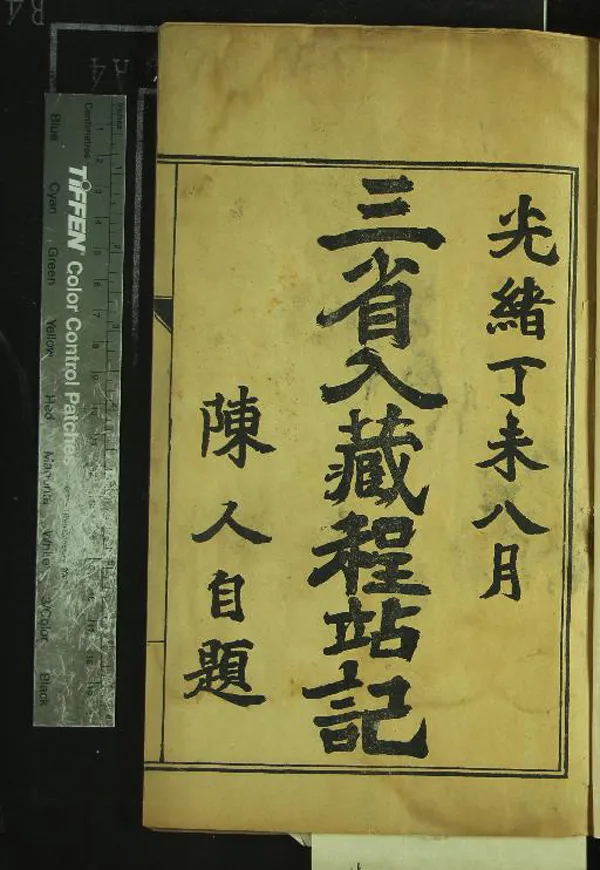 光緒丁未八月
三省入藏程站記
陳人自題
TIFFEN Color Control Patches
Centimetres
Inches
Blue
Cyan
Green
Yellow
Red
Magenta
White
3/Color
Black